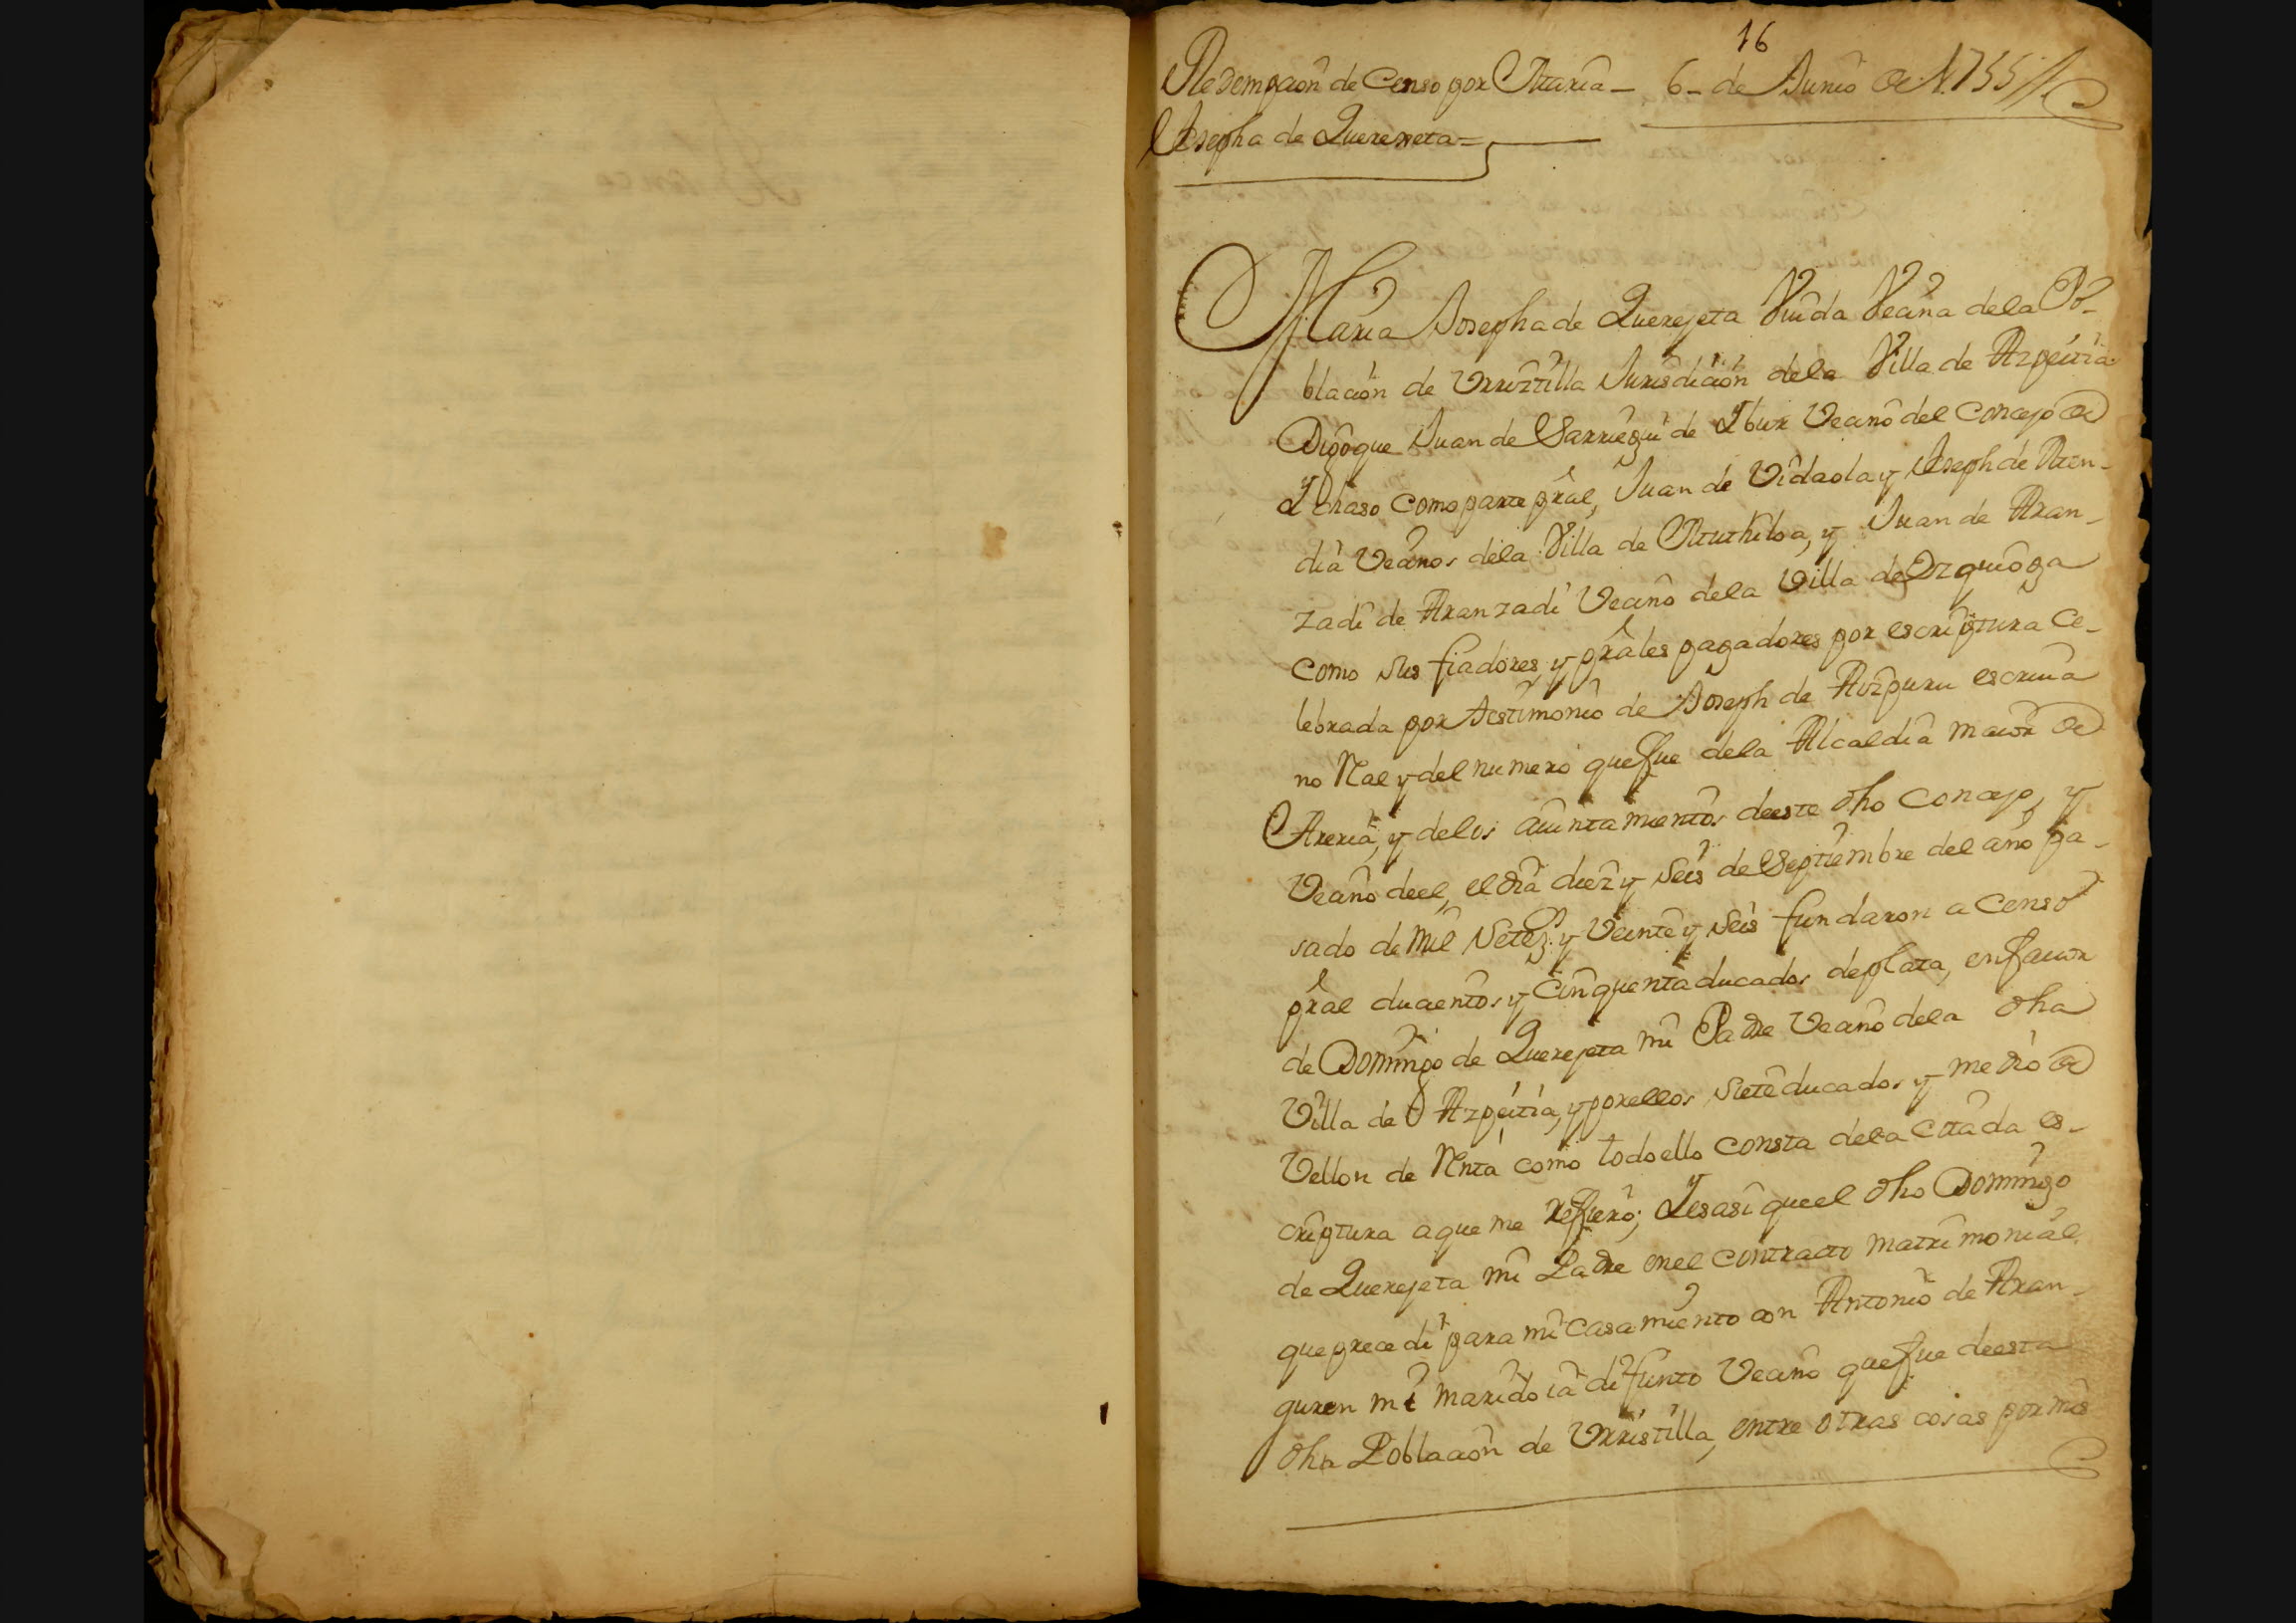 16
Redempcion de Censo por Maria – 6 – de Junio de 1755 //
Josepha de Querexeta =
Maria Josepha de Querejeta Viuda Vecina dela Po-
blacion de Urruztilla Jurisdicion dela Villa de Azpeitia
Digo que Juan de Sarriegui de Ybur Vecino del Concejo de
Ychaso como parte pral, Juan de Vidaola y Joseph de Men-
dia Vecinos dela Villa de Muthiloa, y Juan de Aran-
zadi de Aranzadi Vecino dela Villa de Ozquioga
como sus fiadores, y prales pagadores por escriptura ce-
lebrada por testimonio de Joseph de Aizpuru escriua
no Rae y del numero que fue dela Alcaldia maior de
Areria, y delos aiuntamientos deeste dho Concejo, y
Vecino deel, el dia diez y seis de Septiembre del año pa-
sado de mil Setez.s y Veinte y seis fundaron a Censo
pral ducientos y cinquenta ducados deplata, enfauor
de Domingo de Querejeta mi Padre Vecino dela dha
Villa de Azpeitia, y porellos siete ducados y medio de
Vellon de Rnta como todoello consta dela citada es-
criptura aque me refiero; Yesasi queel dho Domingo
de Querejeta mi Padre enel contracto matrimonial
que precedi para mi casamiento con Antonio de Aran-
guren mi marido ia difunto Vecino quefue deesta
dha Poblacion de Urristilla, entre otras cosas por mis